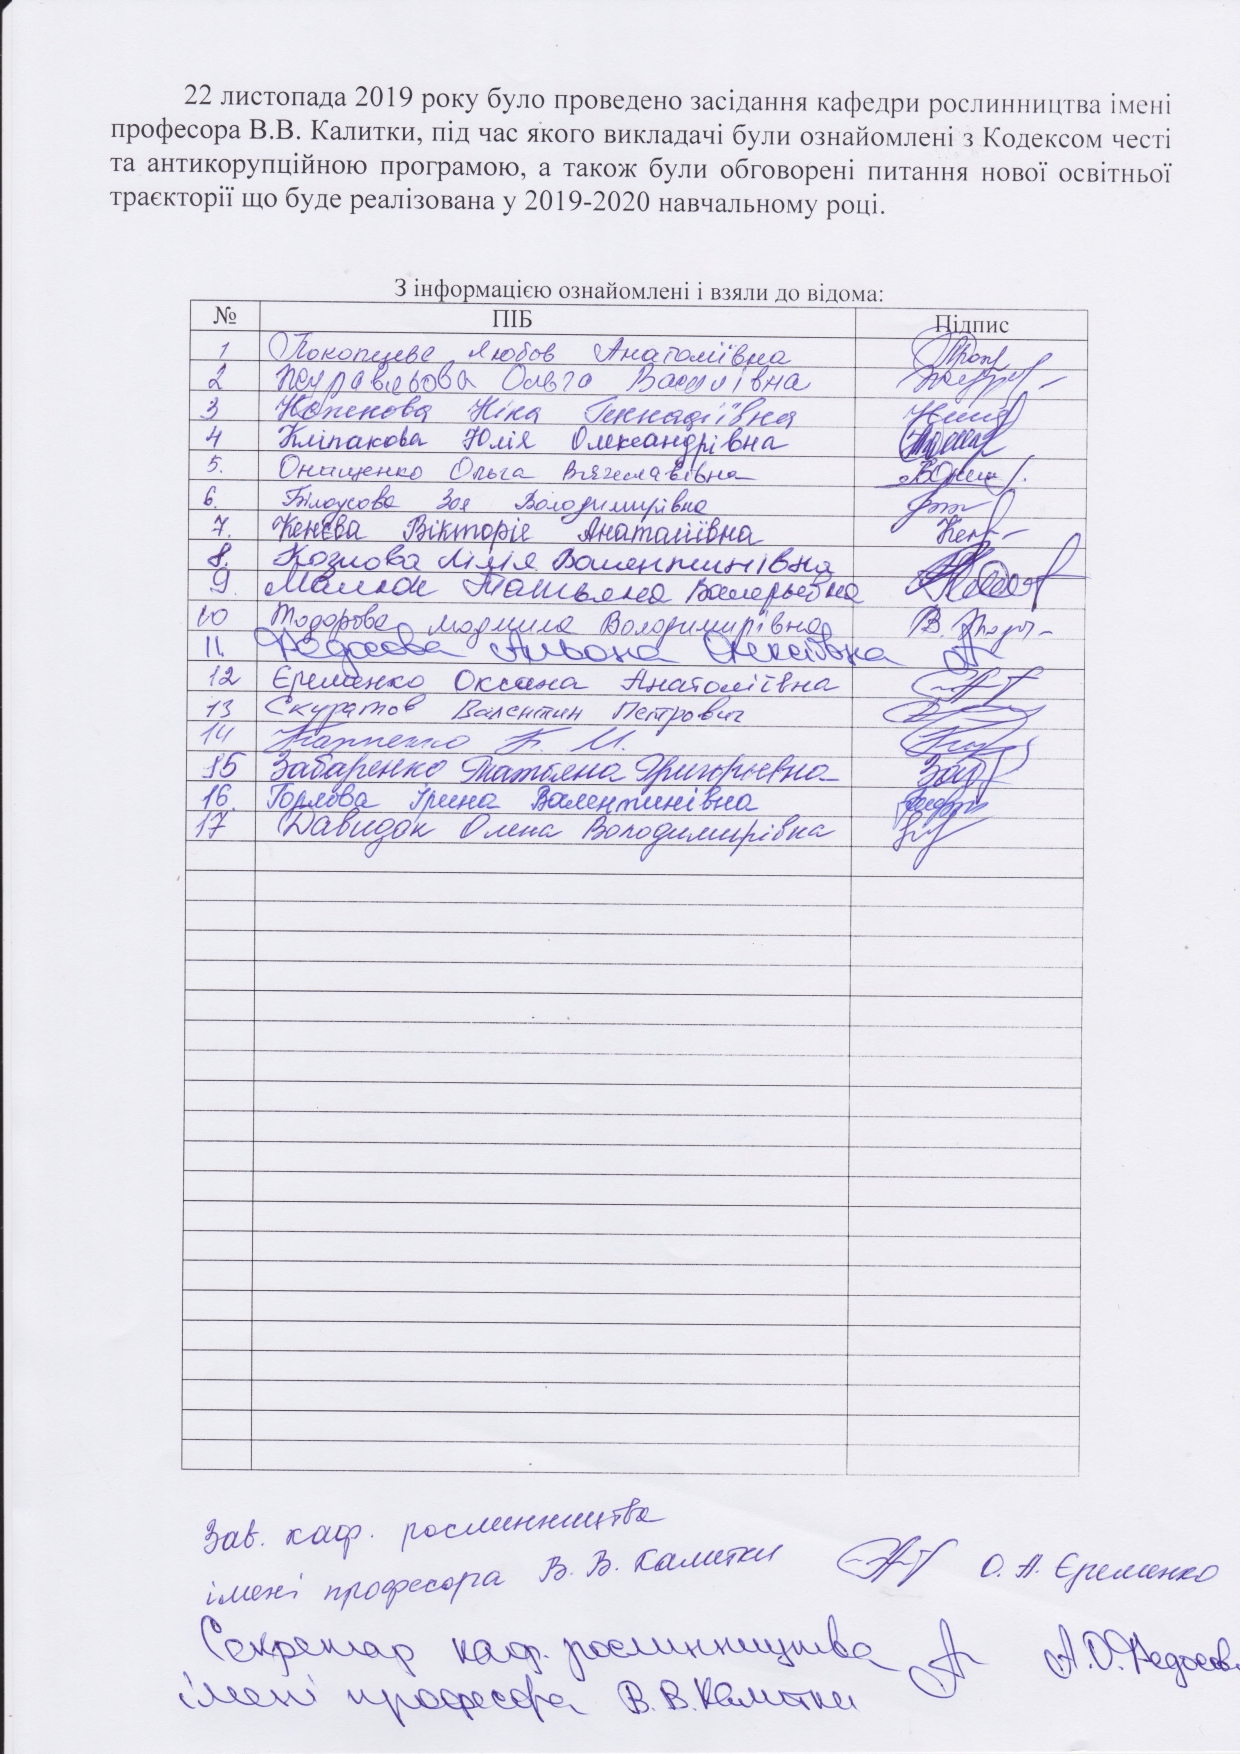 22 листопада 2019 року було проведено засідання кафедри рослинництва імені
професора В.В. Калитки, під час якого викладачі були ознайомлені з Кодексом честі
та антикорупційною програмою, а також були обговорені питання нової освітньої
траєкторії що буде реалізована у 2019-2020 навчальному році.
З інформацією ознайомлені і взяли до відома:
№ ПІБ Підпис
1 Покопцева Любов Анатоліївна
2 Журавльова Ольга Василівна
3 Ніка Геннадіївна
4 Кліпакова Юлія Олександрівна
5. Онищенко Ольга Вячеславівна
6. Білоусова Зоя Володимирівна
7. Кенєва Вікторія Анатоліївна
8. Козлова Лілія Валентинівна
9. Малюк Татьяна Валерьевна
10 Тодорова Людмила Володимирівна
11. Федосова Альона Олексіївна
12 Єременко Оксана Анатоліївна
13 Скуратов Валентин Петрович
14 К. М.
15 Забаренко Татьяна Григорьевна
16. Горлова Ірина Валентинівна
17 Давидок Олена Володимирівна
Зав. каф. рослинництва
імені професора В. В. Калитки О. А. Єременко
Секретар каф. рослинництва А.О. Федосов
імені професора В.В. Калитки